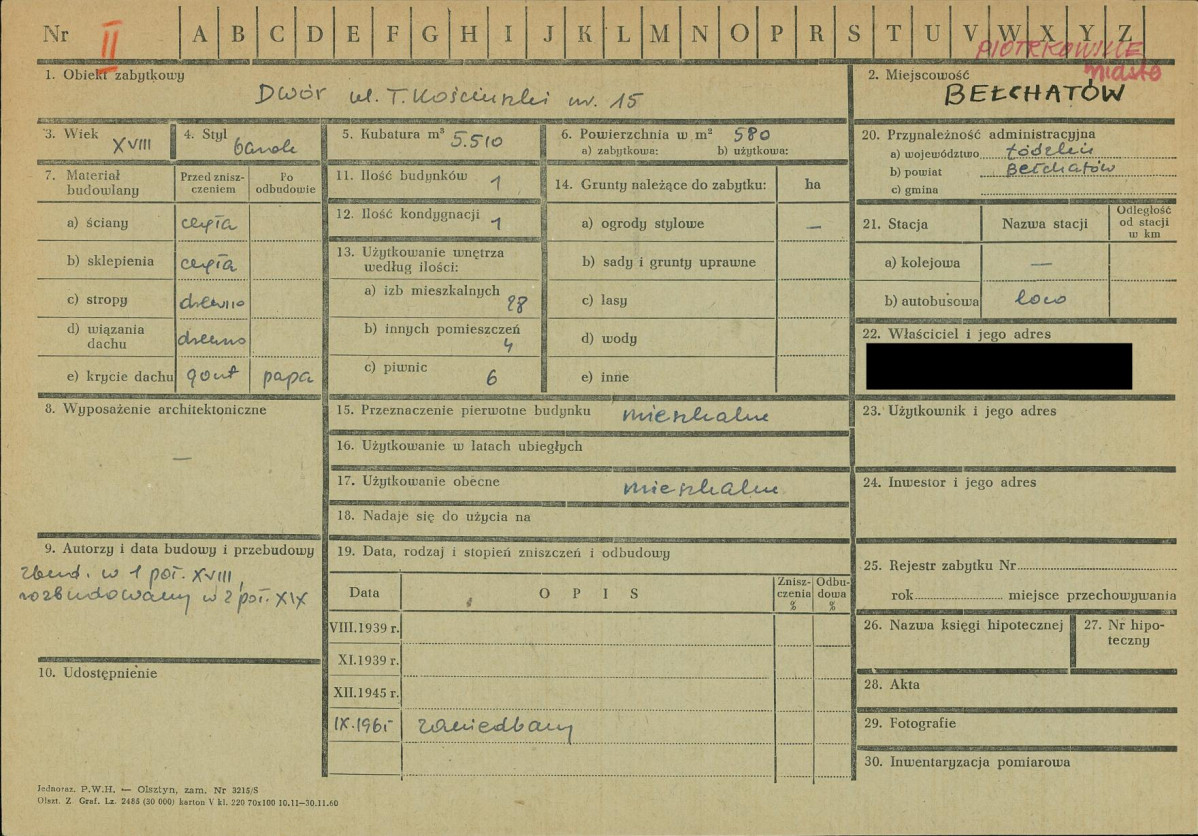 Nr II A B C D E F G H I J K L M N O P R S T U V W X Y Z
PIOTRKOWSKIE
miasto
1. Obiekt zabytkowy
Dwór ul. T. Kościuszki nr. 15
2. Miejscowość
BEŁCHATÓW
3. Wiek XVIII
4. Styl barok
5. Kubatura m³ 5.510
6. Powierzchnia w m² 580
a) zabytkowa: b) użytkowa:
7. Materiał budowlany
Przed zniszczeniem
Po odbudowie
a) ściany cegła
b) sklepienia cegła
c) stropy drewno
d) wiązania dachu drewno
e) krycie dachu gont papa
8. Wyposażenie architektoniczne
—
9. Autorzy i data budowy i przebudowy
zbud. w 1 poł. XVIII,
rozbudowany w 2 poł. XIX
10. Udostępnienie
11. Ilość budynków 1
12. Ilość kondygnacji 1
13. Użytkowanie wnętrza według ilości:
a) izb mieszkalnych 28
b) innych pomieszczeń 4
c) piwnic 6
14. Grunty należące do zabytku: ha
a) ogrody stylowe —
b) sady i grunty uprawne
c) lasy
d) wody
e) inne
15. Przeznaczenie pierwotne budynku mieszkalne
16. Użytkowanie w latach ubiegłych
17. Użytkowanie obecne mieszkalne
18. Nadaje się do użycia na
19. Data, rodzaj i stopień zniszczeń i odbudowy
Data OPIS Zniszczenia % Odbudowa %
VIII.1939 r.
XI.1939 r.
XII.1945 r.
IX.1965 zaniedbany
20. Przynależność administracyjna
a) województwo łódzkie
b) powiat Bełchatów
c) gmina
21. Stacja Nazwa stacji Odległość od stacji w km
a) kolejowa —
b) autobusowa loco
22. Właściciel i jego adres
23. Użytkownik i jego adres
24. Inwestor i jego adres
25. Rejestr zabytku Nr
rok miejsce przechowywania
26. Nazwa księgi hipotecznej
27. Nr hipoteczny
28. Akta
29. Fotografie
30. Inwentaryzacja pomiarowa
Jednoraz. P.W.H. — Olsztyn, zam. Nr 3215/S
Olszt. Z. Graf. Lz. 2485 (30 000) karton V kl. 220 70x100 10.11—30.11.60